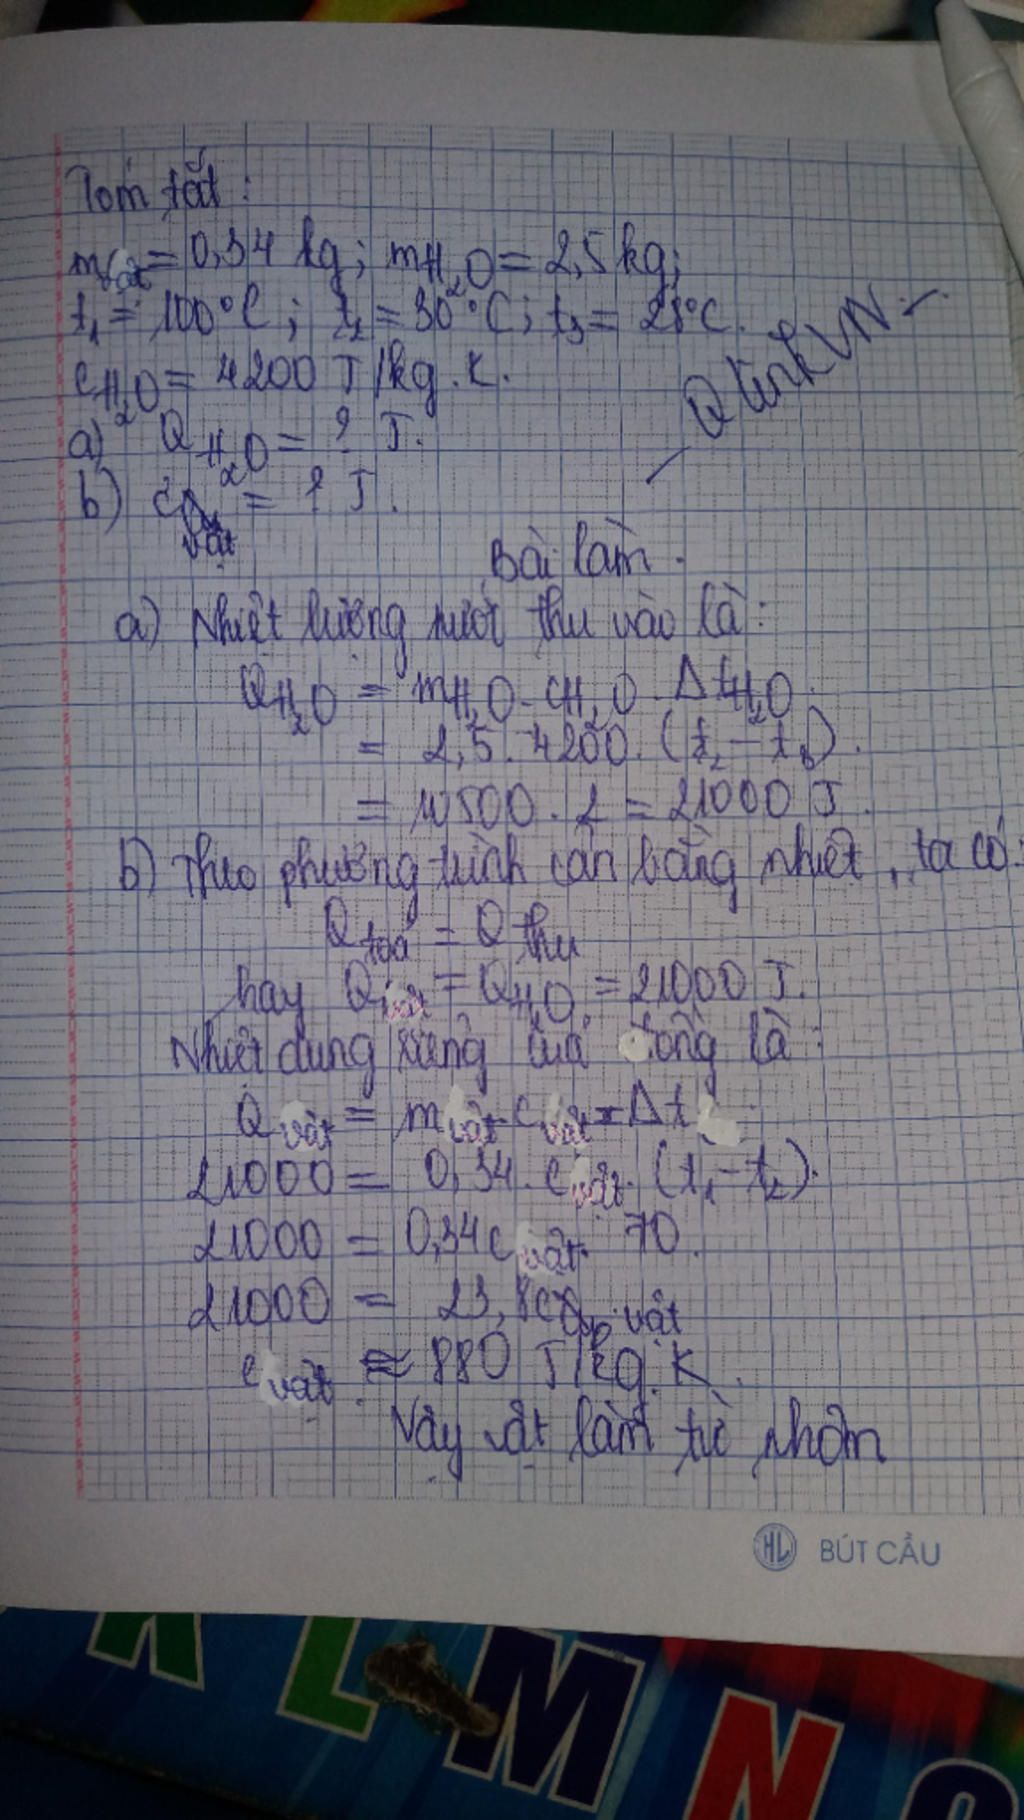 Tóm tắt:
m vật = 0,34 kg; mH₂O = 2,5kg;
t₁ = 100°C; t₂ = 30°C; t₃ = 28°C.
cH₂O = 4200 J/kg.K.
a) QH₂O = ? J.
b) c vật = ? J.
Bài làm.
a) Nhiệt lượng nước thu vào là:
QH₂O = mH₂O. cH₂O. ΔtH₂O.
= 2,5. 4200. (t₂ - t₃).
= 10500. 2 = 21000 J.
b) Theo phương trình cân bằng nhiệt, ta có:
Q toả = Q thu
hay Q vật = QH₂O = 21000 J.
Nhiệt dung riêng của đồng là:
Q vật = m vật. c vật. Δt
21000 = 0,34. c vật. (t₁ - t₂).
21000 = 0,34c vật. 70.
21000 = 23,8c vật
c vật ≈ 880 J/kg.K.
Vậy vật làm từ nhôm
HL BÚT CẦU
K L M N O